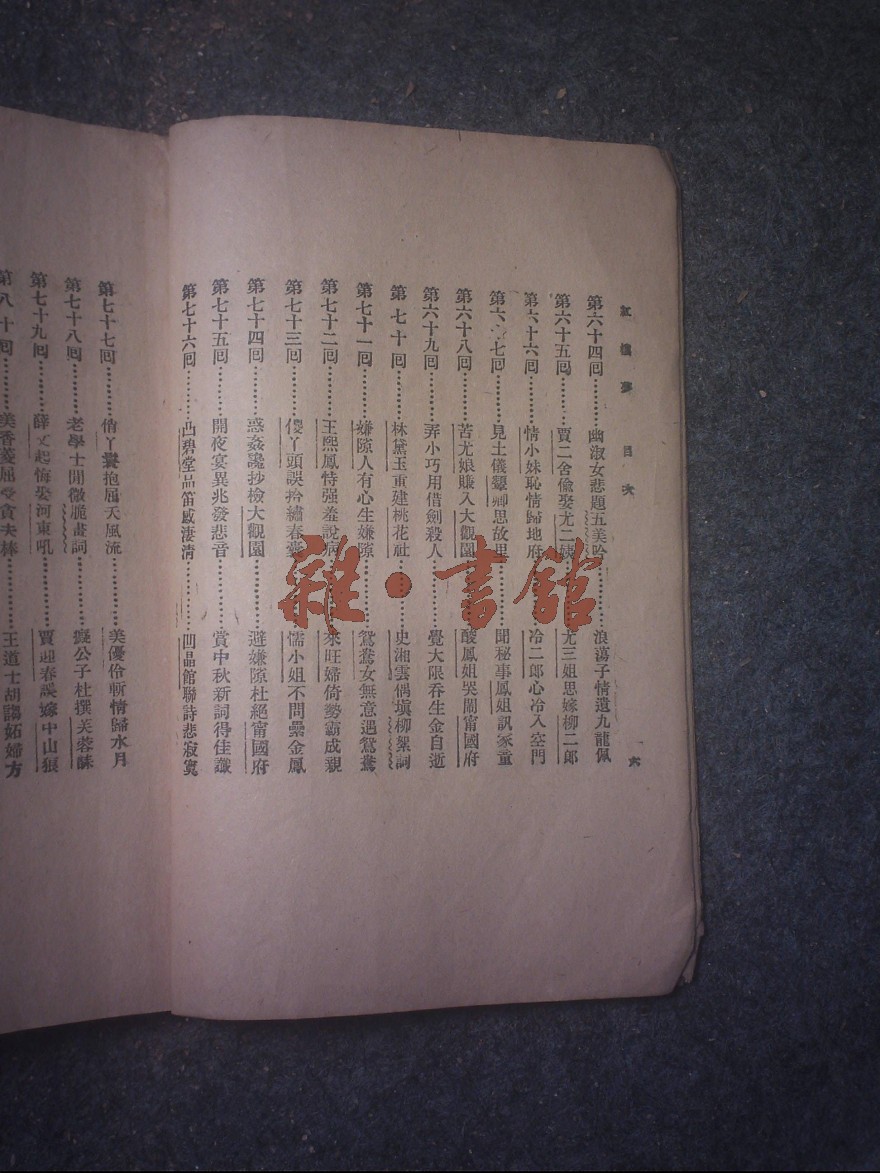 紅樓夢 目次 一六
第六十四回………幽淑女悲題五美吟………浪蕩子情遺九龍佩
第六十五回………賈二舍偷娶尤二姨………尤三姐思嫁柳二郎
第六十六回………情小妹恥情歸地府………冷二郎心冷入空門
第六十七回………見土儀顰卿思故里………聞秘事鳳姐訊家童
第六十八回………苦尤娘賺入大觀園………酸鳳姐哭鬧甯國府
第六十九回………弄小巧用借劍殺人………覺大限吞生金自逝
第七十回………林黛玉重建桃花社………史湘雲偶塡柳絮詞
第七十一回………嫌隙人有心生嫌隙………鴛鴦女無意遇鴛鴦
第七十二回………王熙鳳恃强羞說病………來旺婦倚勢霸成親
第七十三回………儍丫頭誤拾繡春囊………懦小姐不問纍金鳳
第七十四回………惑姦讒抄檢大觀園………避嫌隙杜絕甯國府
第七十五回………開夜宴異兆發悲音………賞中秋新詞得佳讖
第七十六回………凸碧堂品笛感凄清………凹晶館聯詩悲寂寞
第七十七回………俏丫鬟抱屈夭風流………美優伶斬情歸水月
第七十八回………老學士閒徵姽嫿詞………癡公子杜撰芙蓉誄
第七十九回………薛文起悔娶河東吼………賈迎春誤嫁中山狼
第八十回………美香菱屈受貪夫棒………王道士胡謅妬婦方
雜·書館